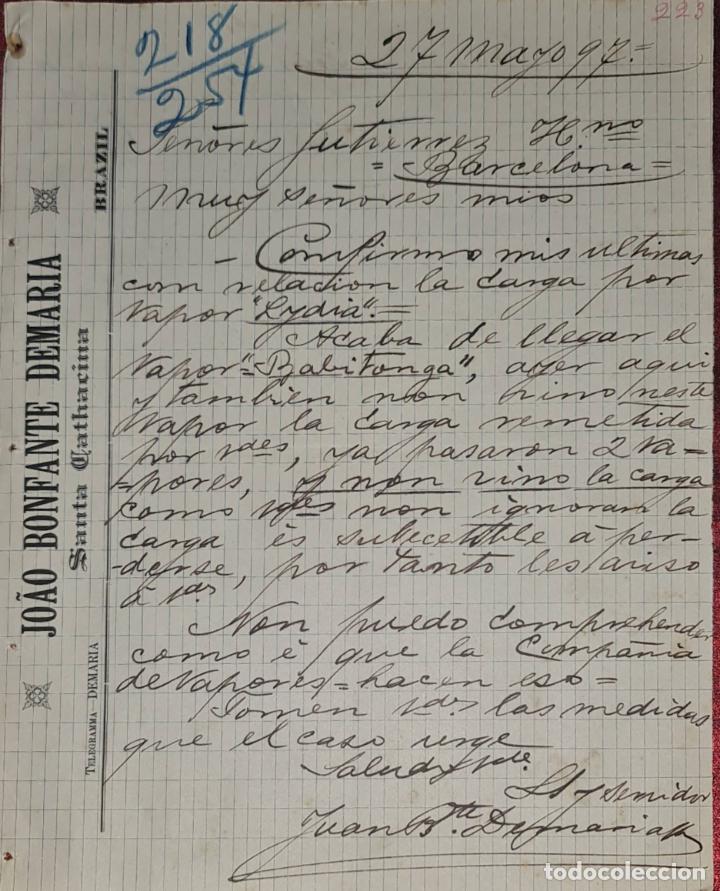 223
218
254
27 Mayo 97.=
Señores Gutierrez Hnos
=Barcelona=
Muy señores mios
– Confirmo mis ultimas
com relacion la carga por
vapor "Lydia".=
Acaba de llegar el
vapor "=Babitonga", ayer aqui
y tambien non vino neste
vapor la carga remetida
por Vdes, ya pasaron 2 va=
=pores, y non vino la carga
como Vdes non ignoram la
carga és subcetible á per-
-derse, por tanto les aviso
á Vdes
Non puedo comprehender
como é que la Compañia
de Vapores=hacen eso=
Tomen Vdes las medidas
que el caso urge
Salud Vde.
SS y servidor
Juan Bta. Demaria
JOÃO BONFANTE DEMARIA
Santa Catharina
BRAZIL
TELEGRAMMA DEMARIA
todocoleccion